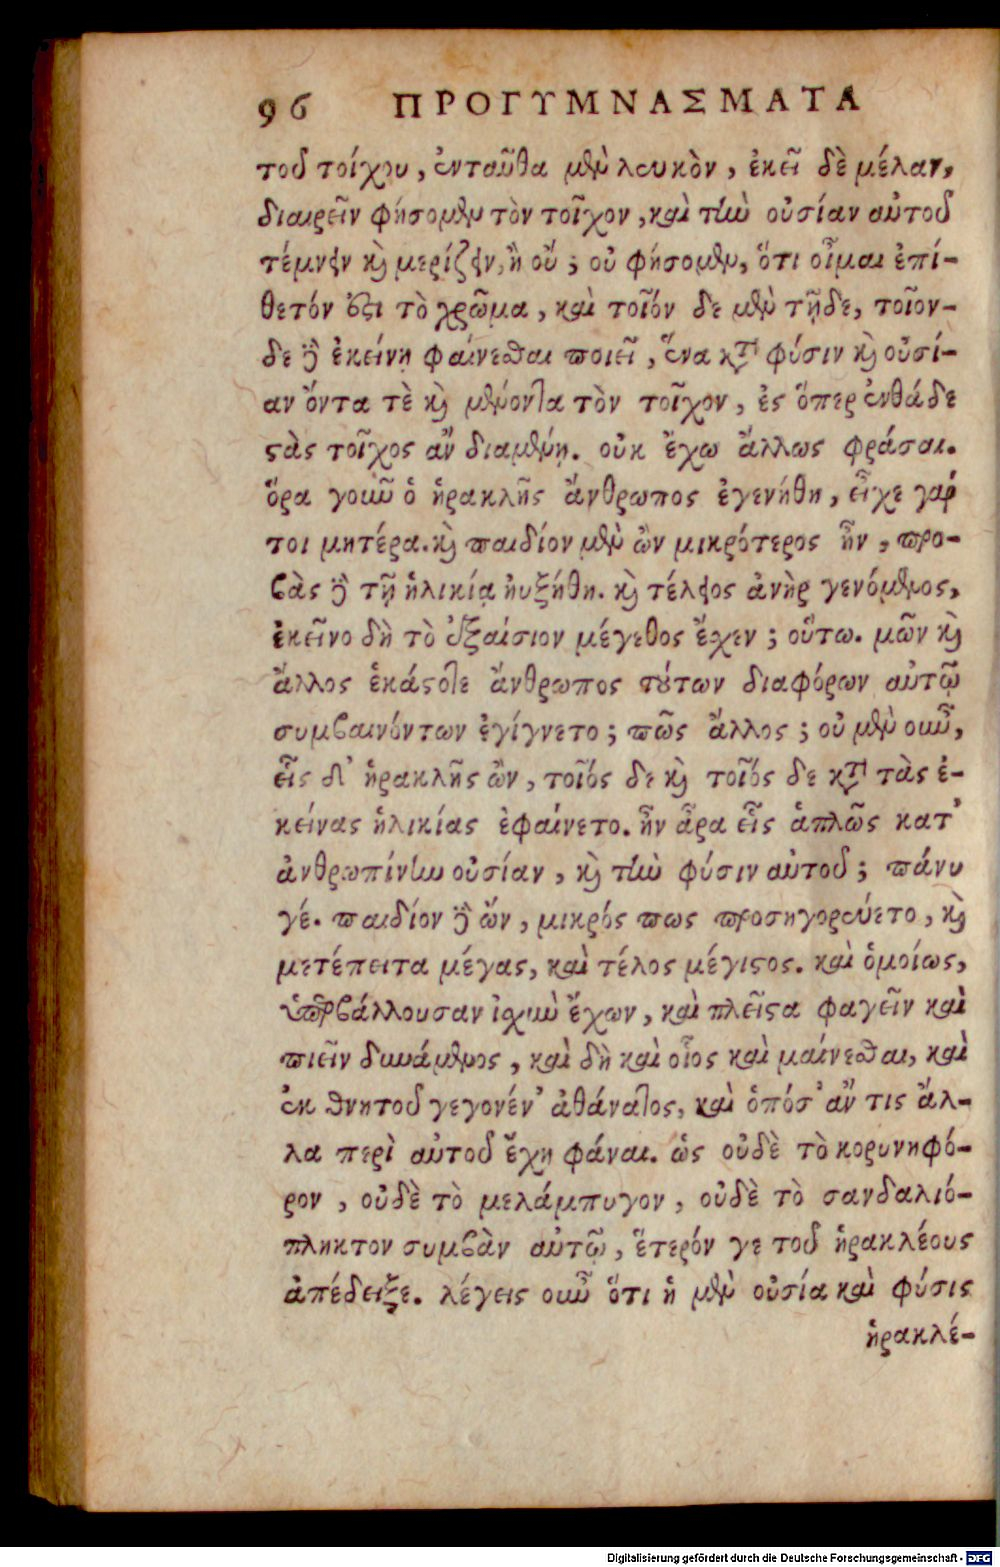 96 ΠΡΟΓΥΜΝΑΣΜΑΤΑ
τοῦ τοίχου, ἐνταῦθα μὲν λευκὸν, ἐκεῖ δὲ μέλαν,
διαιρεῖν φήσομεν τὸν τοῖχον, καὶ τὴν οὐσίαν αὐτοῦ
τέμνειν καὶ μερίζειν, ἢ οὔ; οὐ φήσομεν, ὅτι οἶμαι ἐπί-
θετόν ἐστι τὸ χρῶμα, καὶ τοῖόν δε μὲν τῇδε, τοῖον-
δε δὲ ἐκείνῃ φαίνεσθαι ποιεῖ, ἕνα κατὰ φύσιν καὶ οὐσί-
αν ὄντα τὲ καὶ μένοντα τὸν τοῖχον, ἐς ὅπερ ἐνθάδε
στὰς τοῖχος ἂν διαμένῃ. οὐκ ἔχω ἄλλως φράσαι.
ὅρα γοῦν ὁ ἡρακλῆς ἄνθρωπος ἐγενήθη, εἶχε γάρ
τοι μητέρα. καὶ παιδίον μὲν ὢν μικρότερος ἦν, προ-
βὰς δὲ τῇ ἡλικίᾳ ηυξήθη. καὶ τέλειος ἀνὴρ γενόμενος,
ἐκεῖνο δὴ τὸ ἐξαίσιον μέγεθος ἔχεν; οὕτω. μῶν καὶ
ἄλλος ἑκάστοτε ἄνθρωπος τούτων διαφόρων αὐτῷ
συμβαινόντων ἐγίγνετο; πῶς ἄλλος; οὐ μὲν οὖν,
εἷς δ' ἡρακλῆς ὢν, τοῖός δε καὶ τοῖός δε κατὰ τὰς ἐ-
κείνας ἡλικίας ἐφαίνετο. ἦν ἆρα εἷς ἁπλῶς κατ'
ἀνθρωπίνην οὐσίαν, καὶ τὴν φύσιν αὐτοῦ; πάνυ
γέ. παιδίον δὲ ὤν, μικρός πως προσηγορεύετο, καὶ
μετέπειτα μέγας, καὶ τέλος μέγιστος. καὶ ὁμοίως,
ὑπερβάλλουσαν ἰσχὺν ἔχων, καὶ πλεῖστα φαγεῖν καὶ
πιεῖν δυνάμενος, καὶ δὴ καὶ οἷος καὶ μαίνεσθαι, καὶ
ἐκ θνητοῦ γεγονέν' ἀθάνατος, καὶ ὁπόσ' ἄν τις ἄλ-
λα περὶ αὐτοῦ ἔχῃ φάναι. ὡς οὐδὲ τὸ κορυνηφό-
ρον, οὐδὲ τὸ μελάμπυγον, οὐδὲ τὸ σανδαλιό-
πληκτον συμβὰν αὐτῷ, ἕτερόν γε τοῦ ἡρακλέους
ἀπέδειξε. λέγεις οὖν ὅτι ἡ μὲν οὐσία καὶ φύσις
ἡρακλέ-
Digitalisierung gefördert durch die Deutsche Forschungsgemeinschaft - DFG